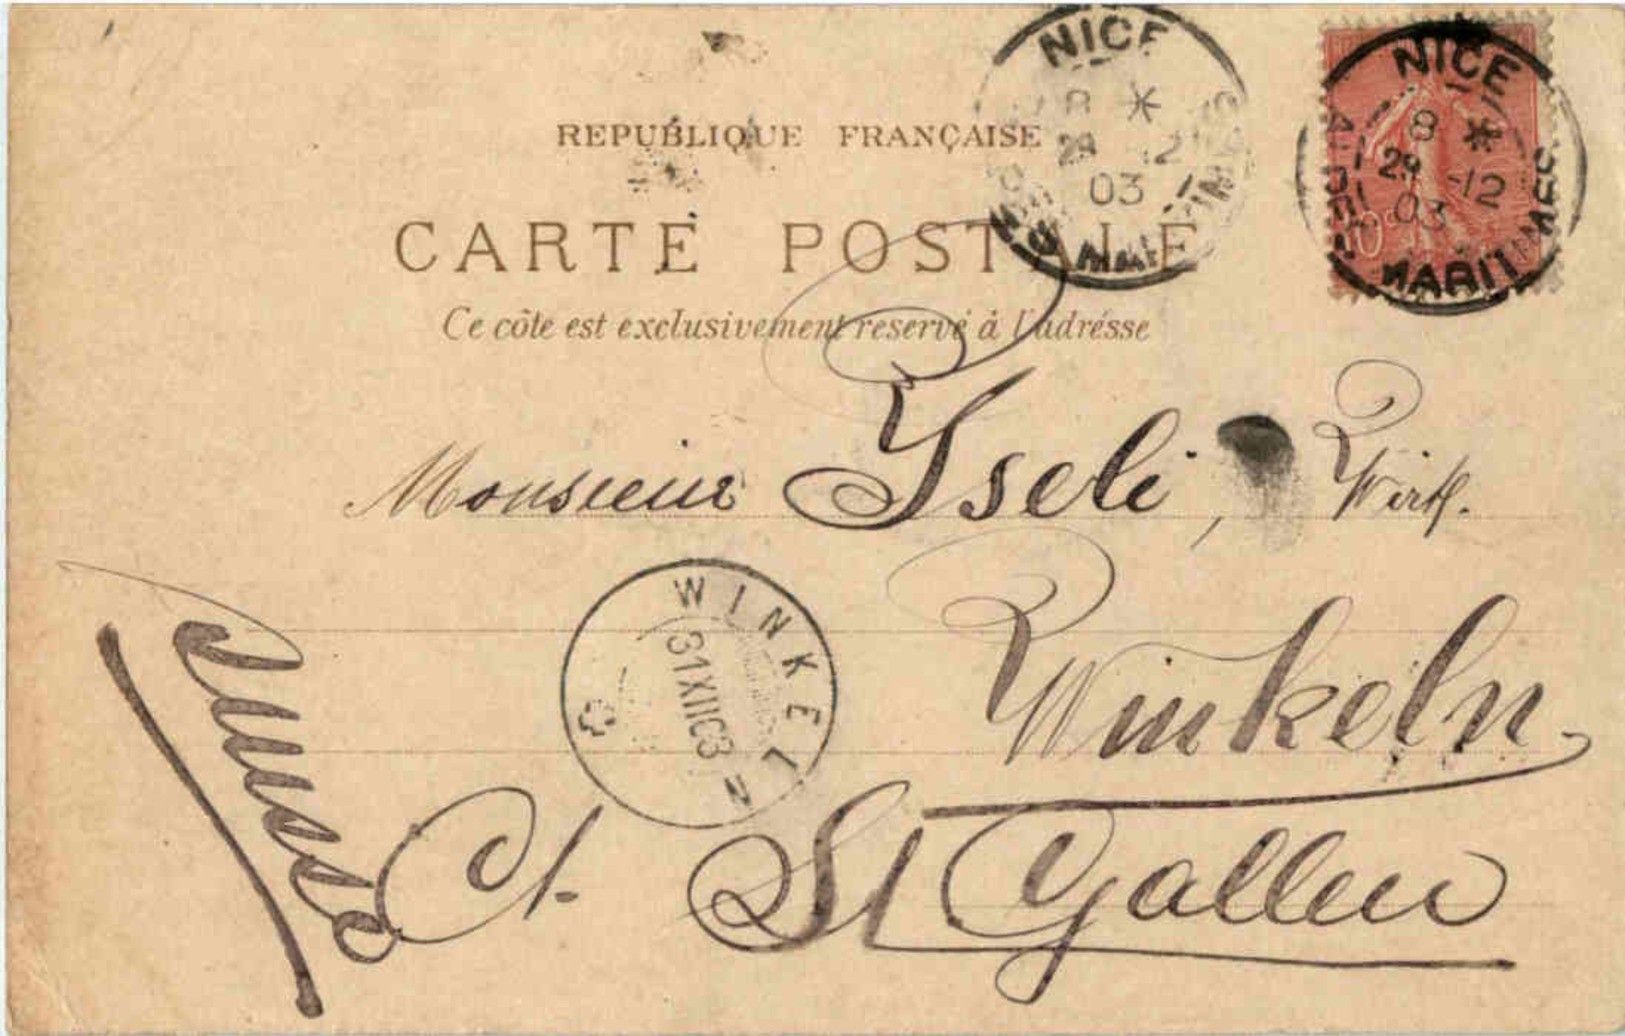 REPUBLIQUE FRANÇAISE
CARTE POSTALE
Ce côte est exclusivement reservé à l'adrésse
NICE
8 *
29 -12
03
ALPES MARITIMES
NICE
8 *
29 -12
03
ALPES MARITIMES
Monsieur Yseli, Wirth.
Winkeln.
Ct. St Gallen
Suisse
WINKELN
31XII03